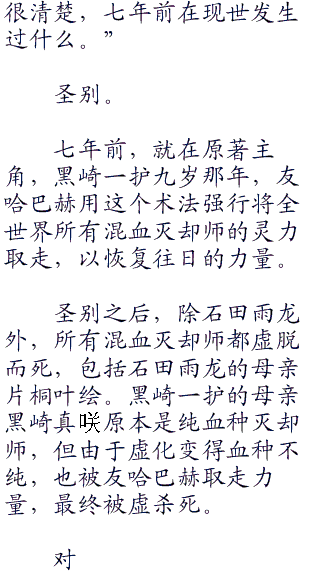 很清楚，七年前在现世发生
过什么。”
圣别。
七年前，就在原著主
角，黑崎一护九岁那年，友
哈巴赫用这个术法强行将全
世界所有混血灭却师的灵力
取走，以恢复往日的力量。
圣别之后，除石田雨龙
外，所有混血灭却师都虚脱
而死，包括石田雨龙的母亲
片桐叶绘。黑崎一护的母亲
黑崎真咲原本是纯血种灭却
师，但由于虚化变得血种不
纯，也被友哈巴赫取走力
量，最终被虚杀死。
对